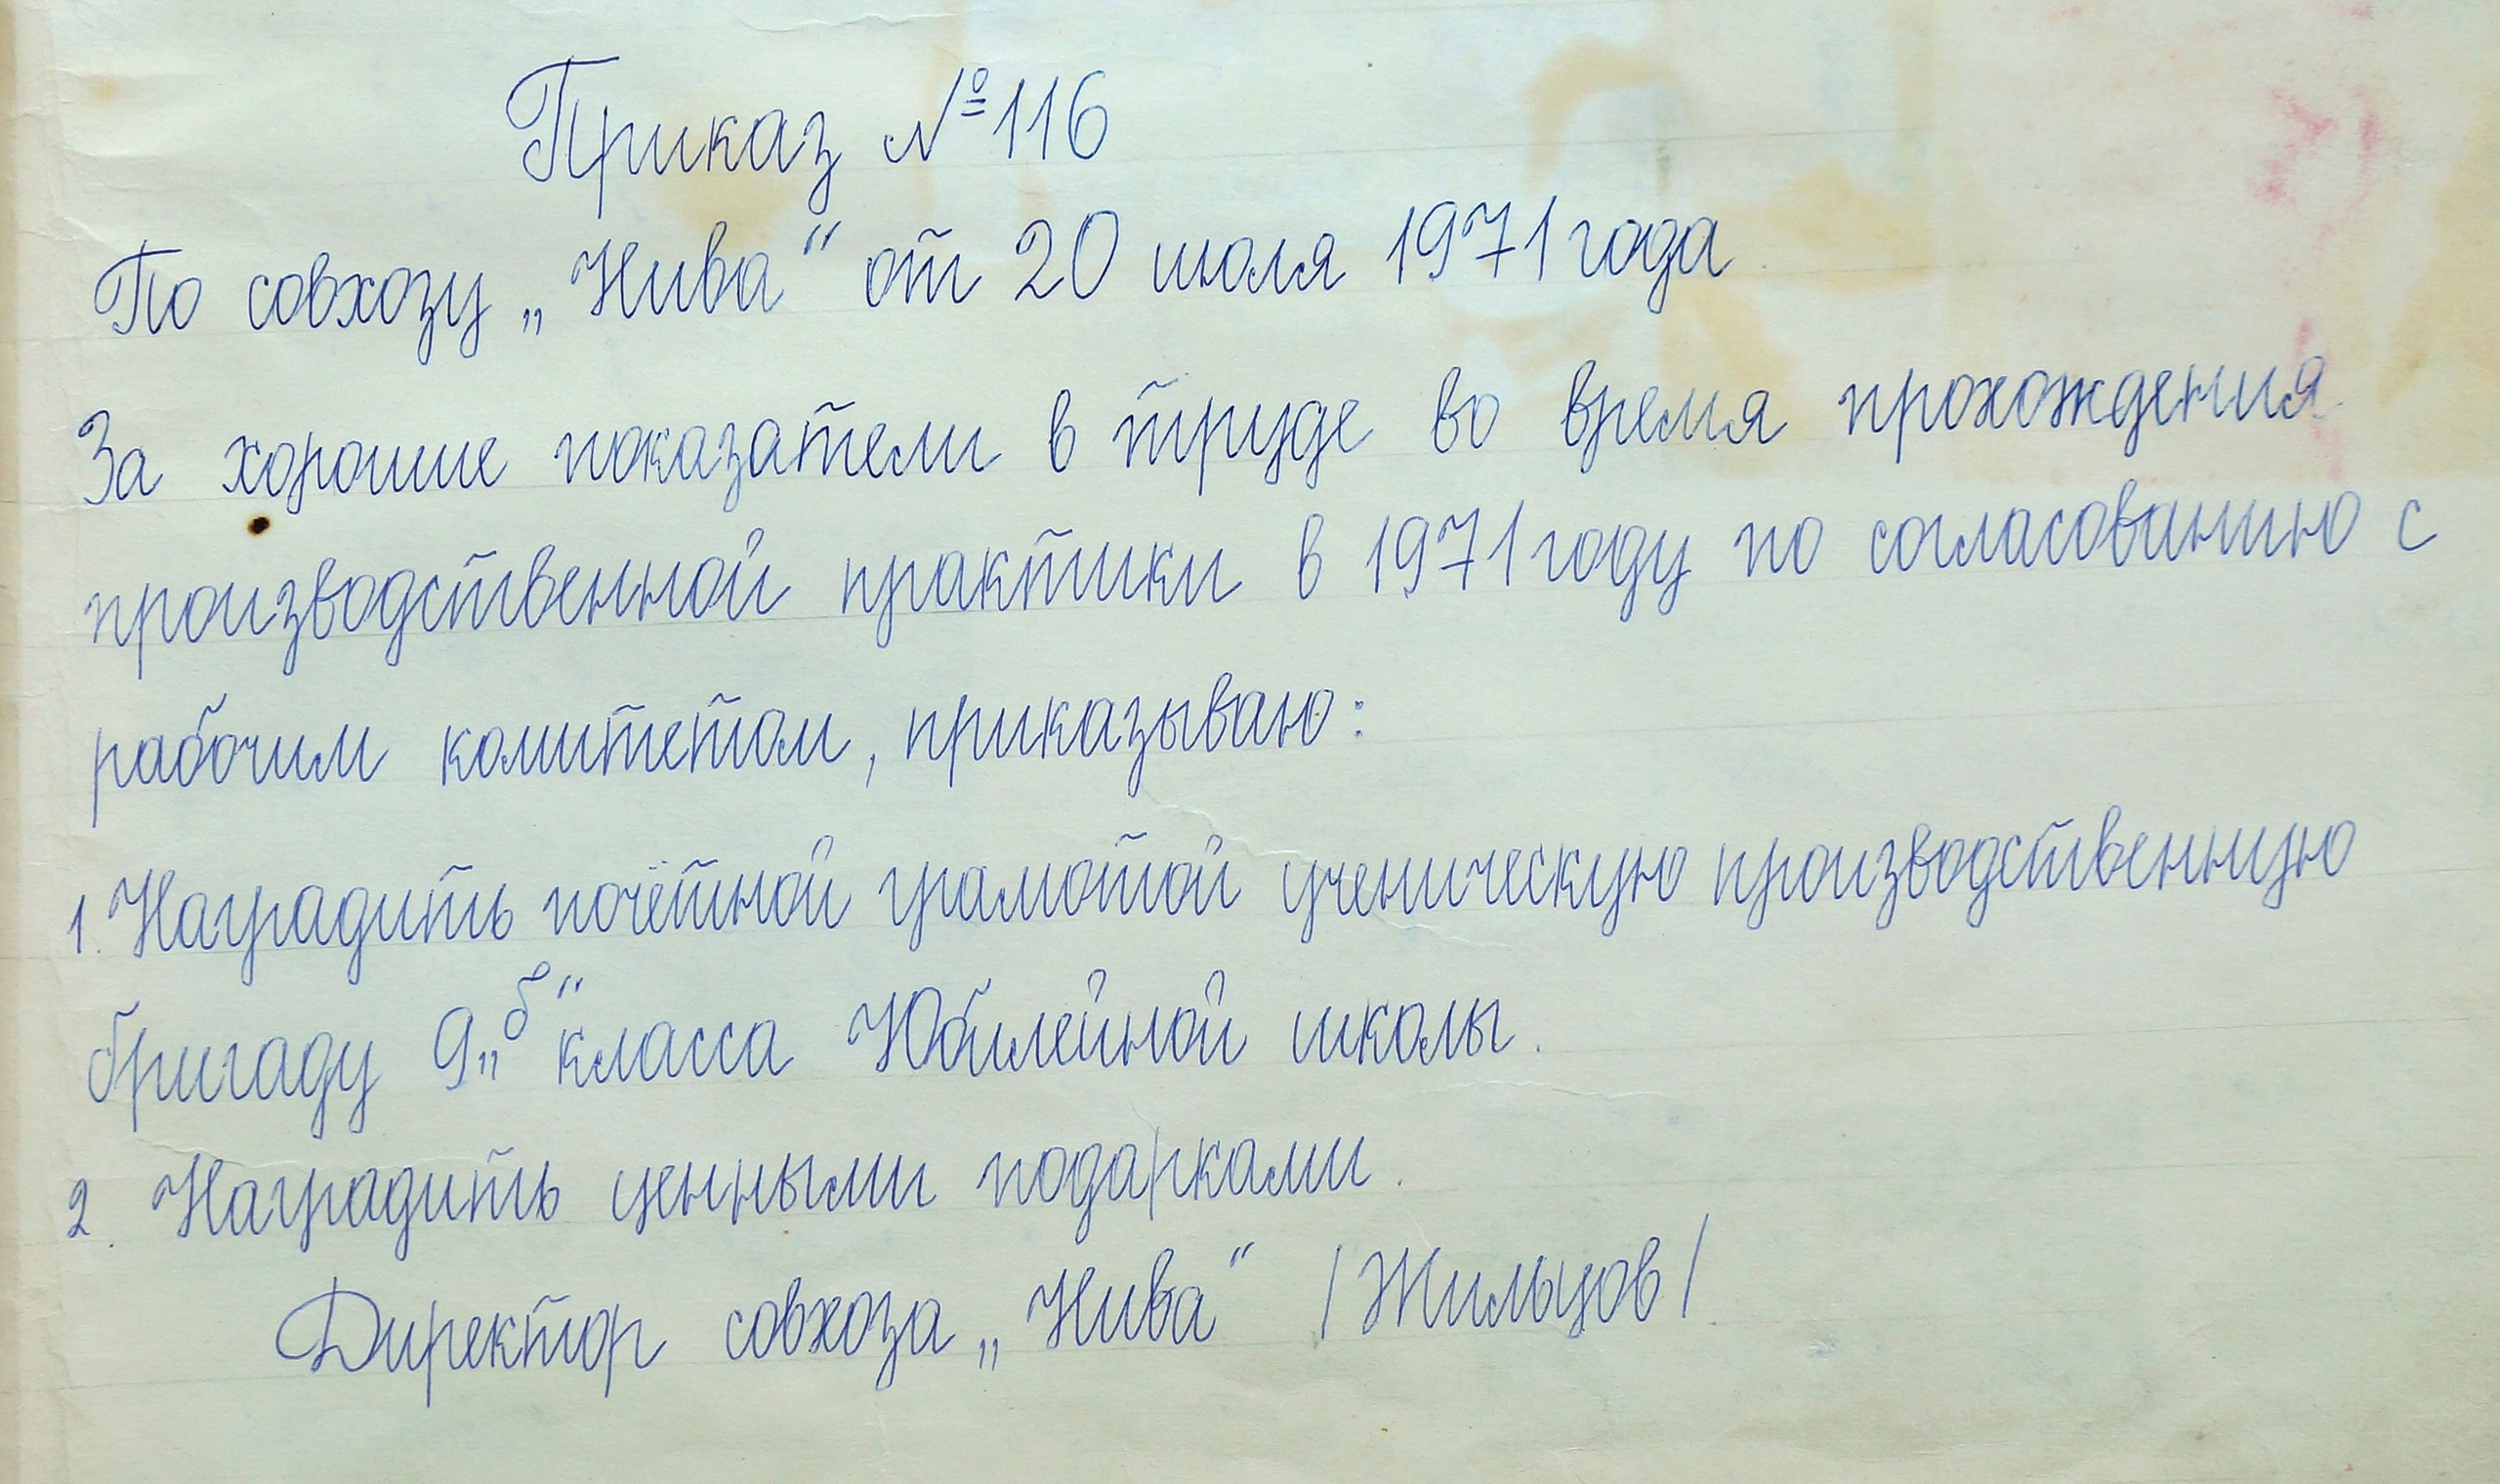 Приказ №116
По совхозу „Нива“ от 20 июля 1971 года
За хорошие показатели в труде во время прохождения
производственной практики в 1971 году по согласованию с
рабочим комитетом, приказываю:
1. Наградить почётной грамотой ученическую производственную
бригаду 9„б“ класса Юбилейной школы.
2. Наградить ценными подарками.
Директор совхоза „Нива“ /Жильцов/.